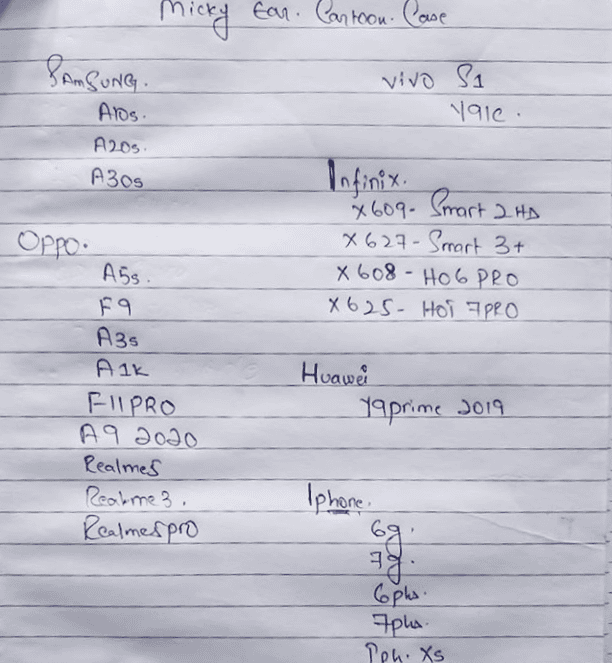 Micky Ear. Cartoon. Case
SAMSUNG.
A10s.
A20s.
A30s
OPPO.
A5s.
F9
A3s
A1K
F11PRO
A9 2020
Realme5
Realme3.
Realme5pro
ViVO S1
Y91C.
Infinix.
X609- Smart 2HD
X627- Smart 3+
X608- HO6 PRO
X625- HOT 7PRO
Huawei
Y9prime 2019
Iphone.
6g.
7g.
6pls.
7pls.
Iph. Xs